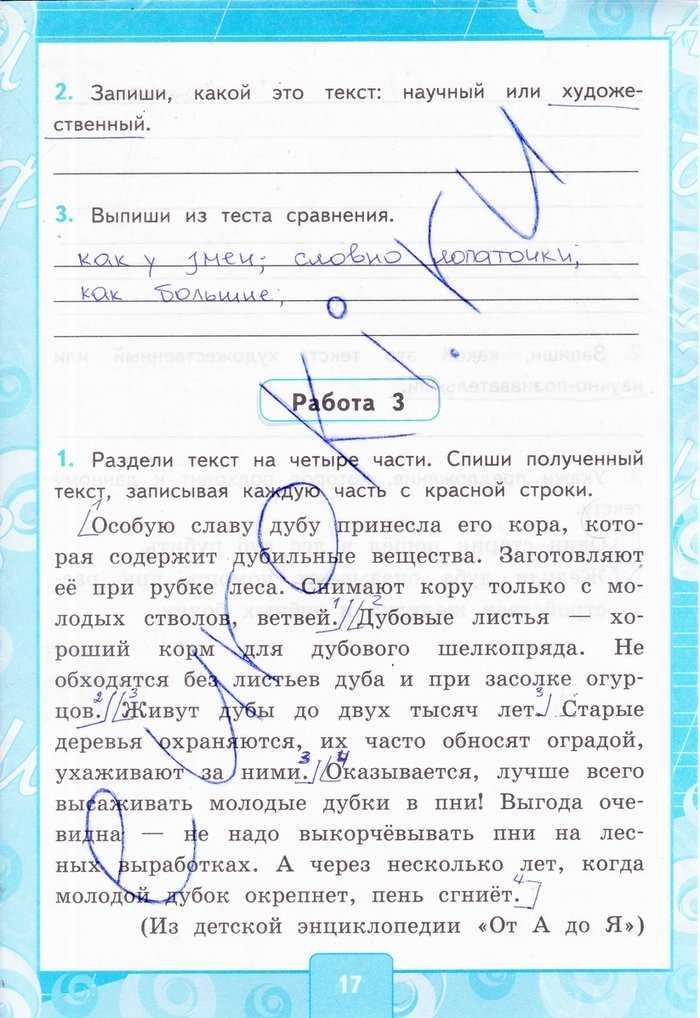 2. Запиши, какой это текст: научный или художе-
ственный.
3. Выпиши из теста сравнения.
как у змеи; словно лопаточки;
как большие;
Работа 3
1. Раздели текст на четыре части. Спиши полученный
текст, записывая каждую часть с красной строки.
1
[Особую славу дубу принесла его кора, кото-
рая содержит дубильные вещества. Заготовляют
её при рубке леса. Снимают кору только с мо-
лодых стволов, ветвей.]1 // [2 Дубовые листья — хо-
роший корм для дубового шелкопряда. Не
обходятся без листьев дуба и при засолке огур-
цов.]2 // [3 Живут дубы до двух тысяч лет.3] Старые
деревья охраняются, их часто обносят оградой,
ухаживают за ними.3] // [4 Оказывается, лучше всего
высаживать молодые дубки в пни! Выгода оче-
видна — не надо выкорчёвывать пни на лес-
ных выработках. А через несколько лет, когда
молодой дубок окрепнет, пень сгниёт.4]
(Из детской энциклопедии «От А до Я»)
17
e-uroki.ru